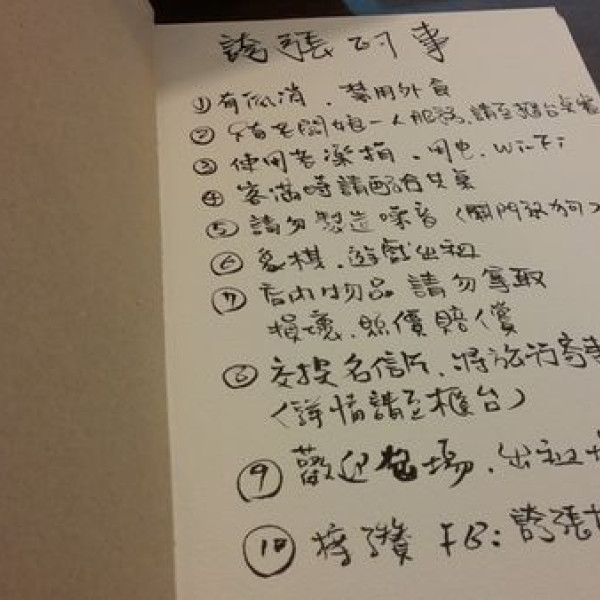 誇張的事
①有低消、禁用外食
②只有老闆娘一人服務,請至櫃台點餐
③使用者樂捐、用电、WiFi
④客滿時請配合共桌
⑤請勿製造噪音(關門放狗)
⑥象棋、遊戲出租
⑦店內物品請勿拿取
損壞、照價賠償
⑧交換名信片、將旅行寄
(詳情請至櫃台)
⑨歡迎包場、出租
⑩按讚 FB:誇張